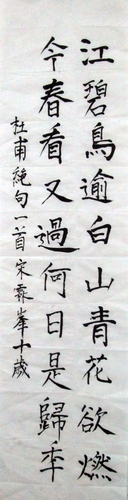 江碧鳥逾白山青花欲燃
今春看又過何日是歸年
杜甫絕句一首宋霖峯十歲